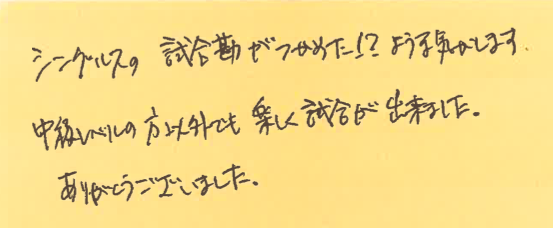 シングルスの 試合勘がつかめた!? ような気がします.
中級レベルの方以外でも 楽しく試合が出来ました。
ありがとうございました。